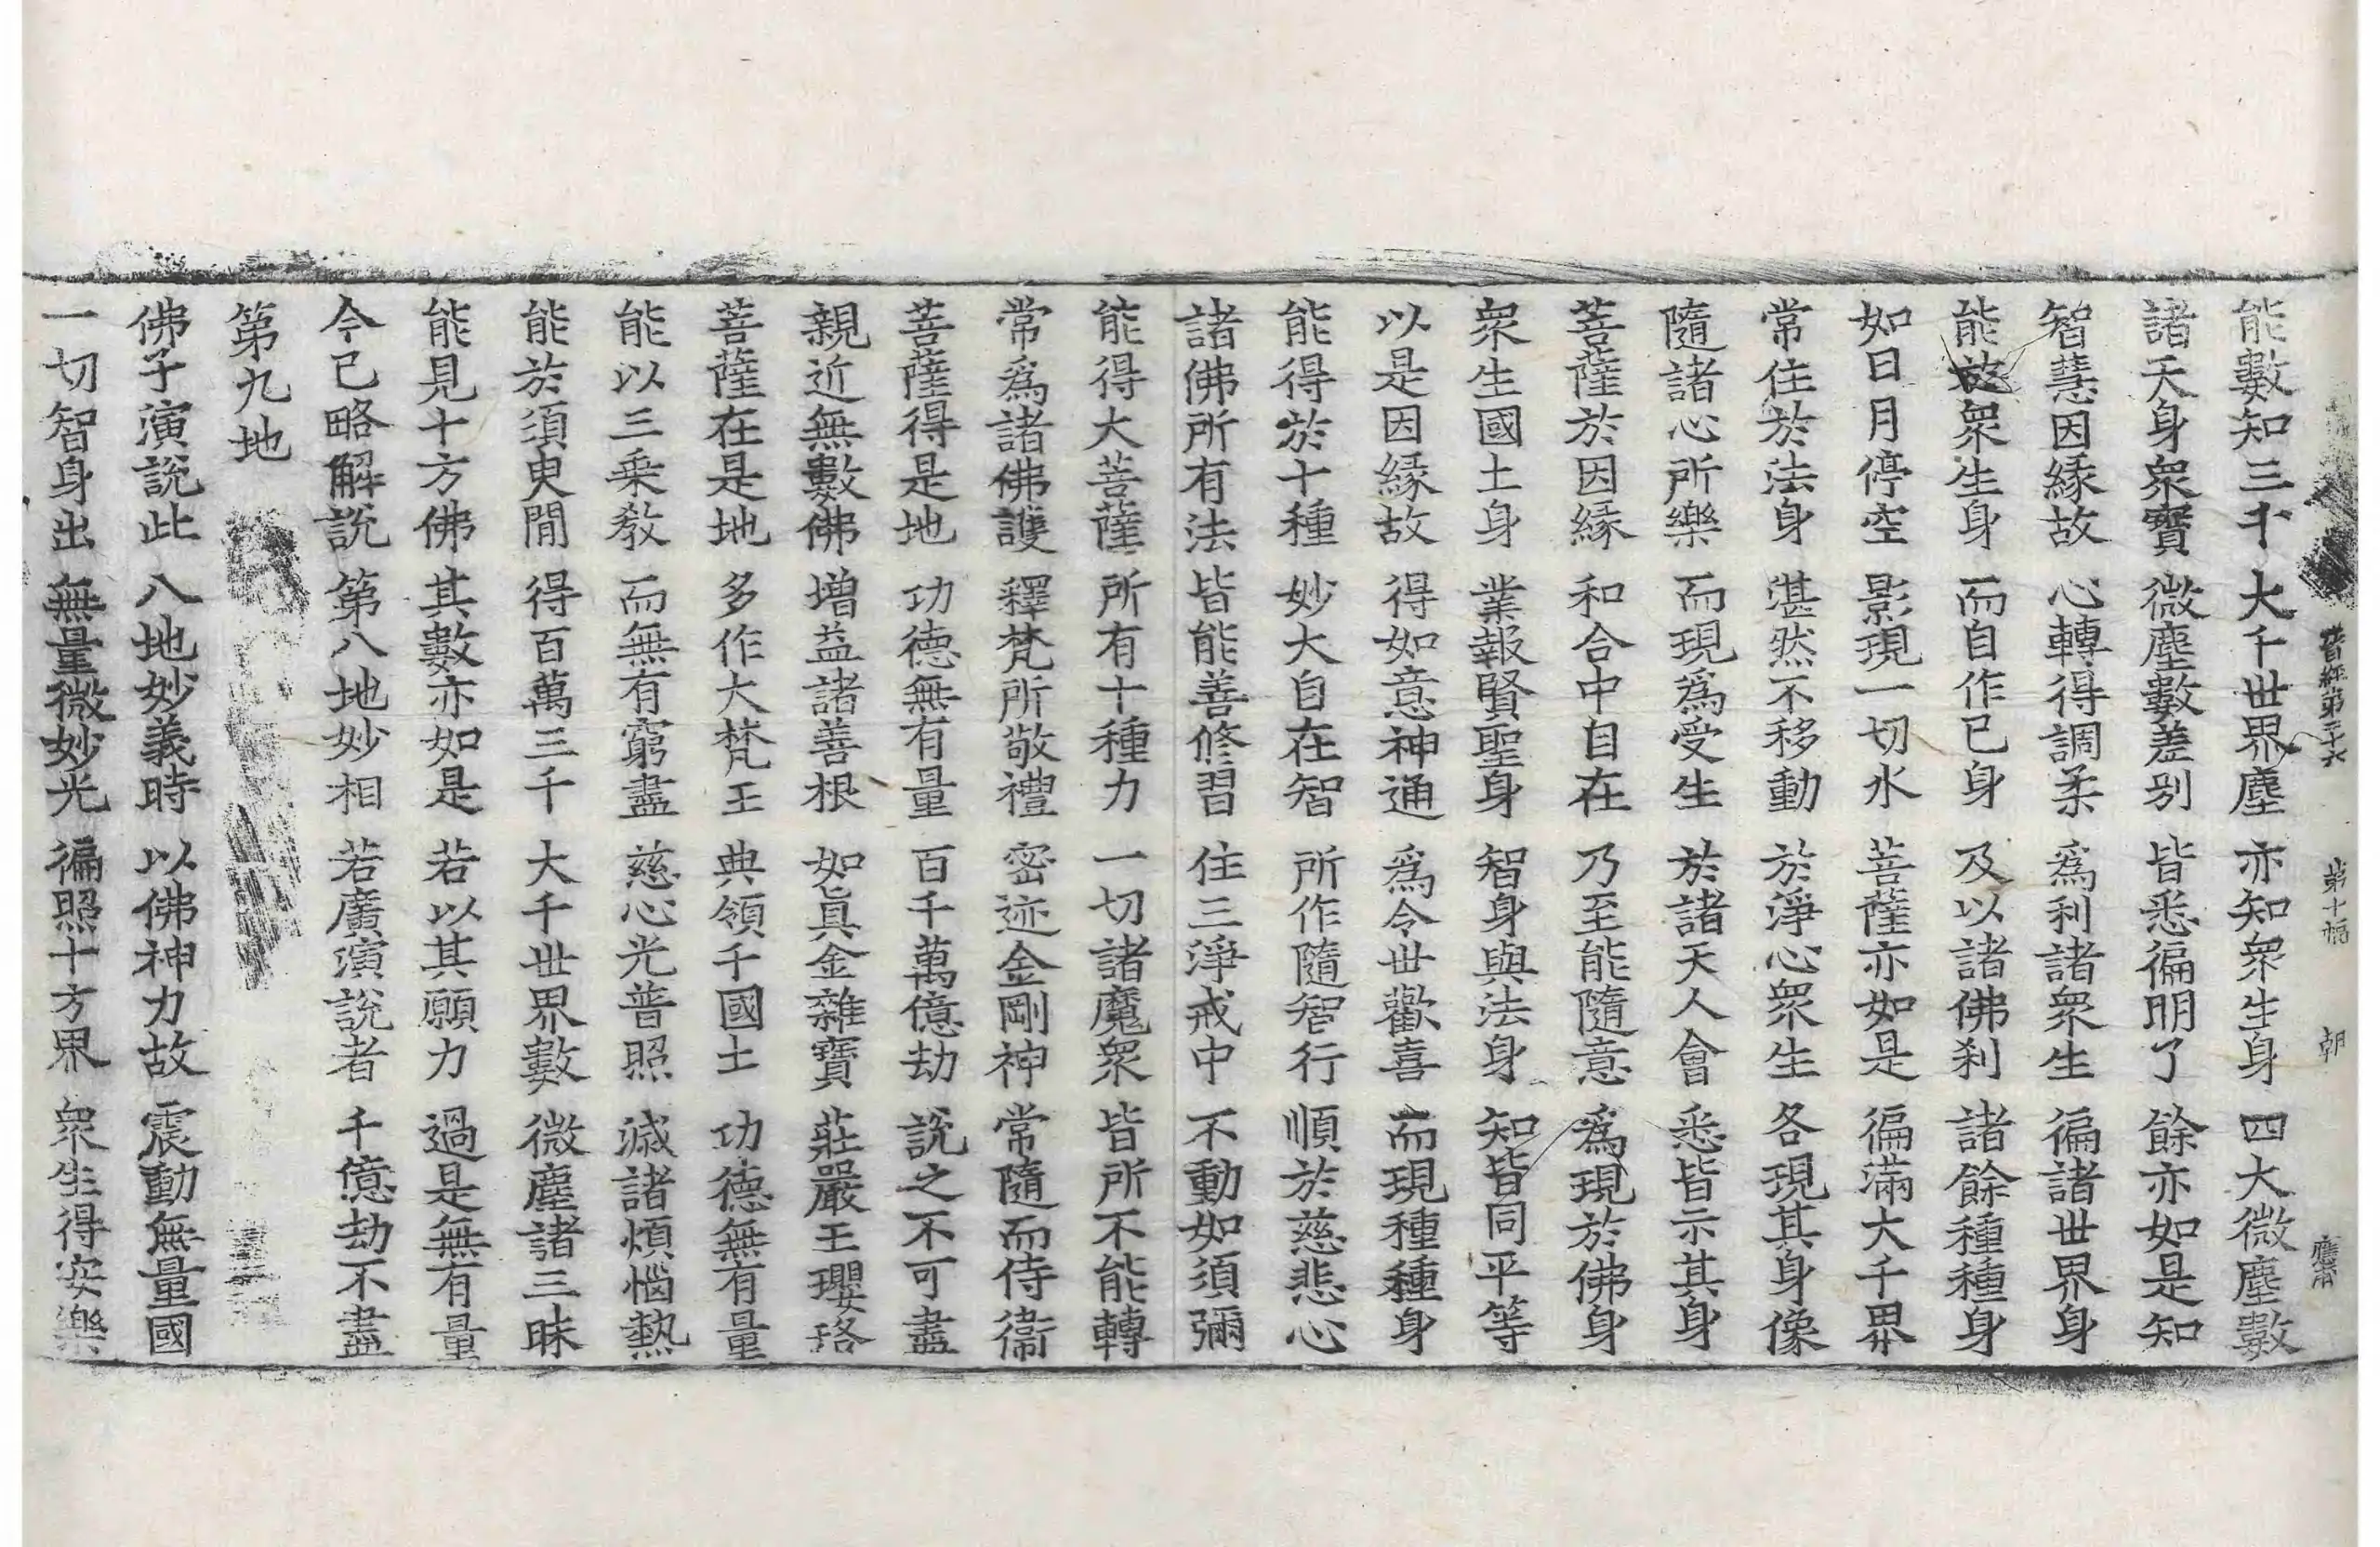 晉經第三十六 第十幅 朝
能數知三千 大千世界塵 亦知衆生身 四大微塵數
諸天身衆寶 微塵數差别 皆悉徧明了 餘亦如是知
智慧因緣故 心轉得調柔 爲利諸衆生 徧諸世界身
能故衆生身 而自作已身 及以諸佛刹 諸餘種種身
如日月停空 影現一切水 菩薩亦如是 徧滿大千界
常住於法身 湛然不移動 於淨心衆生 各現其身像
隨諸心所樂 而現爲受生 於諸天人會 悉皆示其身
菩薩於因緣 和合中自在 乃至能隨意 爲現於佛身
衆生國土身 業報賢聖身 智身與法身 知皆同平等
以是因緣故 得如意神通 爲令世歡喜 而現種種身
能得於十種 妙大自在智 所作隨智行 順於慈悲心
諸佛所有法 皆能善修習 住三淨戒中 不動如須彌
能得大菩薩 所有十種力 一切諸魔衆 皆所不能轉
常爲諸佛護 釋梵所敬禮 密迹金剛神 常隨而侍衞
菩薩得是地 功德無有量 百千萬億劫 說之不可盡
親近無數佛 增益諸善根 如眞金雜寶 莊嚴王瓔珞
菩薩在是地 多作大梵王 典領千國土 功德無有量
能以三乘教 而無有窮盡 慈心光普照 滅諸煩惱熱
能於須臾閒 得百萬三千 大千世界數 微塵諸三昧
能見十方佛 其數亦如是 若以其願力 過是無有量
今已略解說 第八地妙相 若廣演說者 千億劫不盡
第九地
佛子演說此 八地妙義時 以佛神力故 震動無量國
一切智身出 無量微妙光 徧照十方界 衆生得安樂